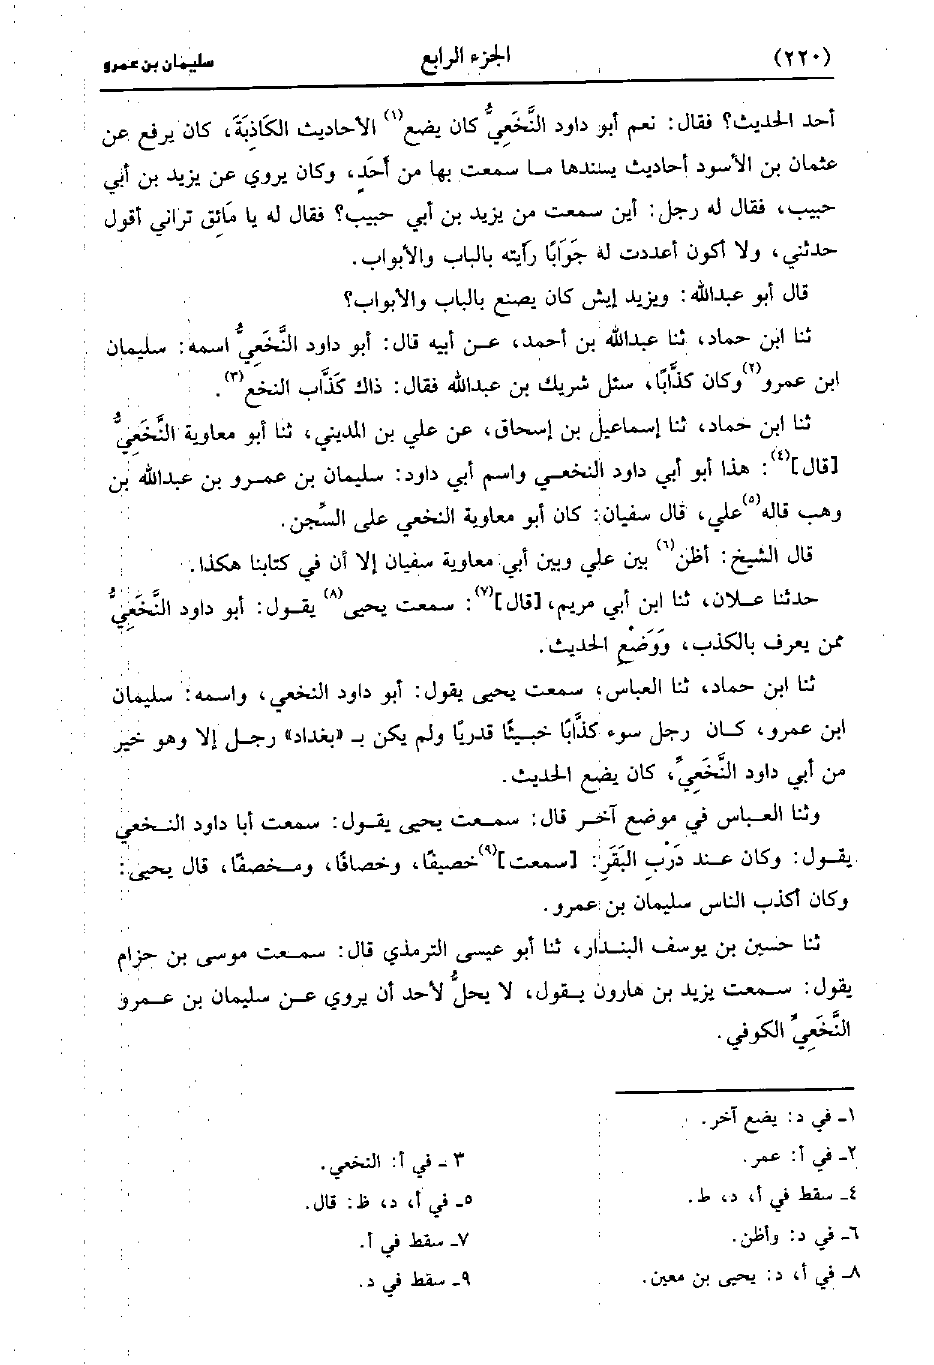 (٢٢٠) الجزء الرابع سليمان بن عمرو
أحد الحديث؟ فقال: نعم أبو داود النَّخَعِيُّ كان يضع(١) الأحاديث الكَاذِبَةَ، كان يرفع عن
عثمان بن الأسود أحاديث يسندها ما سمعت بها من أَحَدٍ، وكان يروي عن يزيد بن أبي
حبيب، فقال له رجل: أين سمعت من يزيد بن أبي حبيب؟ فقال له يا مَائِق تراني أقول
حدثني، ولا أكون أعددت له جَوَابًا رأيته بالباب والأبواب.
قال أبو عبدالله: ويزيد إيش كان يصنع بالباب والأبواب؟
ثنا ابن حماد، ثنا عبدالله بن أحمد، عن أبيه قال: أبو داود النَّخَعِيُّ اسمه: سليمان
ابن عمرو(٢) وكان كذَّابًا، سئل شريك بن عبدالله فقال: ذاك كَذَّاب النخع(٣).
ثنا ابن حماد، ثنا إسماعيل بن إسحاق، عن علي بن المديني، ثنا أبو معاوية النَّخَعِيُّ
[قال](٤): هذا أبو أبي داود النخعي واسم أبي داود: سليمان بن عمرو بن عبدالله بن
وهب قاله(٥) علي، قال سفيان: كان أبو معاوية النخعي على السِّجن.
قال الشيخ: أظن(٦) بين علي وبين أبي معاوية سفيان إلا أن في كتابنا هكذا.
حدثنا علان، ثنا ابن أبي مريم، [قال](٧): سمعت يحيى(٨) يقول: أبو داود النَّخَعِيُّ
ممن يعرف بالكذب، وَوَضْعِ الحديث.
ثنا ابن حماد، ثنا العباس؛ سمعت يحيى يقول: أبو داود النخعي، واسمه: سليمان
ابن عمرو، كان رجل سوء كذَّابًا خبيثًا قدريًا ولم يكن بـ «بغداد» رجل إلا وهو خير
من أبي داود النَّخَعِيِّ، كان يضع الحديث.
وثنا العباس في موضع آخر قال: سمعت يحيى يقول: سمعت أبا داود النخعي
يقول: وكان عند دَرْبِ البَقَرِ: [سمعت](٩) خصيفًا، وخصافًا، ومخصفًا، قال يحيى:
وكان أكذب الناس سليمان بن عمرو.
ثنا حسين بن يوسف البندار، ثنا أبو عيسى الترمذي قال: سمعت موسى بن حزام
يقول: سمعت يزيد بن هارون يقول، لا يحلُّ لأحد أن يروي عن سليمان بن عمرو
النَّخَعِيِّ الكوفي.
١ـ في د: يضع آخر.
٢ـ في أ: عمر.
٣ ـ في أ: النخعي.
٤ـ سقط في أ، د، ط.
٥ـ في أ، د، ظ: قال.
٦ـ في د: وأظن.
٧ـ سقط في أ.
٨ـ في أ، د: يحيى بن معين.
٩ـ سقط في د.